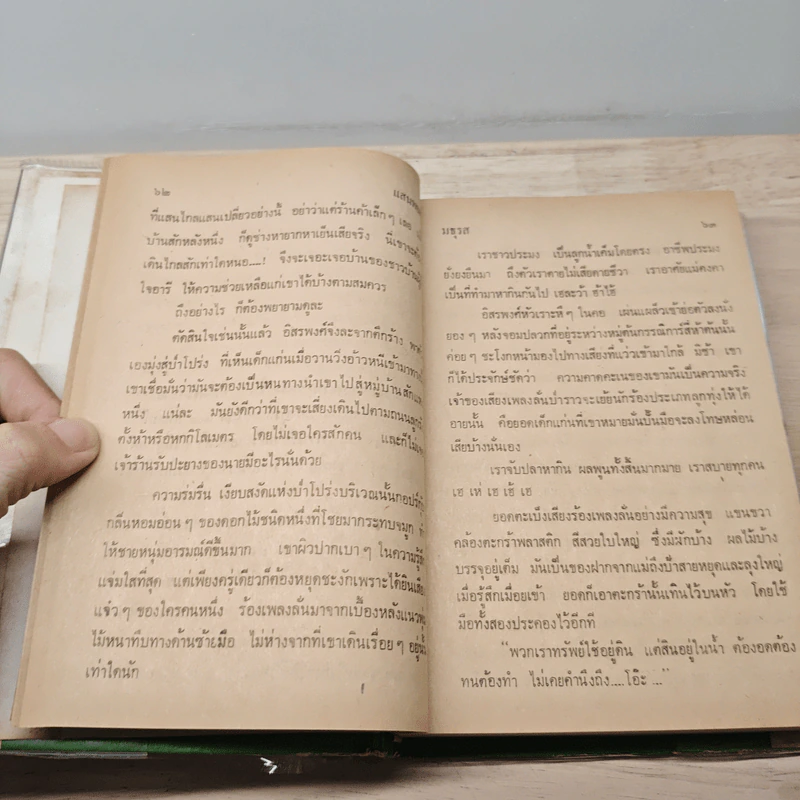 ๖๒
ที่แสนไกลแสนเปลี่ยวอย่างนี้ อย่าว่าแต่ร้านค้าเล็กๆ เลย
บ้านสักหลังหนึ่ง ก็ดูช่างหายากหาเย็นเสียจริง นี่เขาจะต้อง
เดินไกลสักเท่าใดหนอ....! จึงจะเจอะเจอบ้านของชาวบ้านผู้มี
ใจอารี ให้ความช่วยเหลือแก่เขาได้บ้างตามสมควร
ถึงอย่างไร ก็ต้องพยายามดูละ
ตัดสินใจเช่นนั้นแล้ว อิสรพงศ์จึงละจากตึกร้าง
เองมุ่งสู่ป่าโปร่ง ที่เห็นเด็กแก่นเมื่อวานวิ่งอ้าวหนีเข้ามาทาง
เขาเชื่อมั่นว่ามันจะต้องเป็นหนทางนำเขาไปสู่หมู่บ้านสัก
หนึ่ง แน่ละ มันยังดีกว่าที่เขาจะเสี่ยงเดินไปตามถนนลูกรัง
ตั้งห้าหรือหกกิโลเมตร โดยไม่เจอใครสักคน และก็ไม่
เจ้าร้านรับปะยางของนายมีอะไรนั่นด้วย
ความร่มรื่น เงียบสงัดแห่งป่าโปร่งบริเวณนั้นกอปรกับ
กลิ่นหอมอ่อนๆ ของดอกไม้ชนิดหนึ่งที่โชยมากระทบจมูก
ให้ชายหนุ่มอารมณ์ดีขึ้นมาก เขาผิวปากเบาๆ ในความรู้สึก
แจ่มใสที่สุด แต่เพียงครู่เดียวก็ต้องหยุดชะงักเพราะได้ยินเสียง
แจ๋วๆ ของใครคนหนึ่ง ร้องเพลงลั่นมาจากเบื้องหลังแนวพุ่ม
ไม้หนาทึบทางด้านซ้ายมือ ไม่ห่างจากที่เขาเดินเรื่อยๆ อยู่นั้น
เท่าใดนัก
มธุรส ๖๓
เราชาวประมง เป็นลูกน้ำเค็มโดยตรง อาชีพประมง
ยั่งยืนมา ถึงตัวเราตายไม่เสียดายชีวา เราอาศัยแม่คงคา
เป็นที่ทำมาหากินกันไป เฮละว้า ฮ้าไฮ้
อิสรพงศ์หัวเราะหึๆ ในคอ เผ่นแผล็วเข้าย่อตัวลงนั่ง
ยองๆ หลังจอมปลวกที่อยู่ระหว่างหมู่ต้นกรรณิการ์สี่ห้าต้นนั้น
ค่อยๆ ชะโงกหน้ามองไปทางเสียงที่แว่วเข้ามาใกล้ มิช้า เขา
ก็ได้ประจักษ์ชัดว่า ความคาดคะเนของเขามันเป็นความจริง
เจ้าของเสียงเพลงลั่นป่าราวจะเย้ยนักร้องประเภทลูกทุ่งให้ได้
อายนั้น คือยอดเด็กแก่นที่เขาหมายมั่นปั้นมือจะลงโทษหล่อน
เสียบ้างนั่นเอง
เราจับปลาหากิน ผลพูนทั้งสิ้นมากมาย เราสบายทุกคน
เฮ เห่ เฮ เฮ้ เฮ
ยอดตะเบ็งเสียงร้องเพลงลั่นอย่างมีความสุข แขนขวา
คล้องตะกร้าพลาสติก สีสวยใบใหญ่ ซึ่งมีผักบ้าง ผลไม้บ้าง
บรรจุอยู่เต็ม มันเป็นของฝากจากแม่ถึงป้าสายหยุดและลุงใหญ่
เมื่อรู้สึกเมื่อยเข้า ยอดก็เอาตะกร้านั้นเทินไว้บนหัว โดยใช้
มือทั้งสองประคองไว้อีกที
“พวกเราทรัพย์ใช้อยู่ดิน แต่สินอยู่ในน้ำ ต้องอดต้อง
ทนต้องทำ ไม่เคยคำนึงถึง....โอ๊ะ ...”